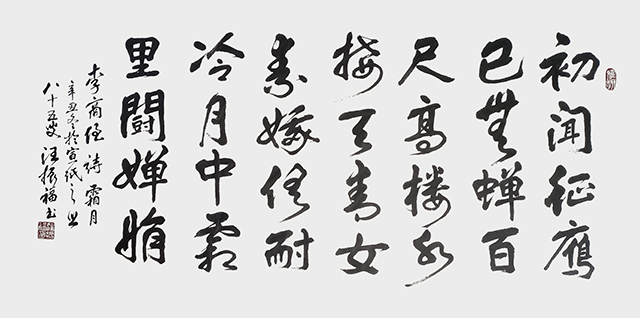 初闻征鴈
已無蝉百
尺高楼水
接天青女
素娥俱耐
冷月中霜
里闘婵娟
李商隐诗霜月
辛丑冬於宣纸之乡
八十五叟汪振福书